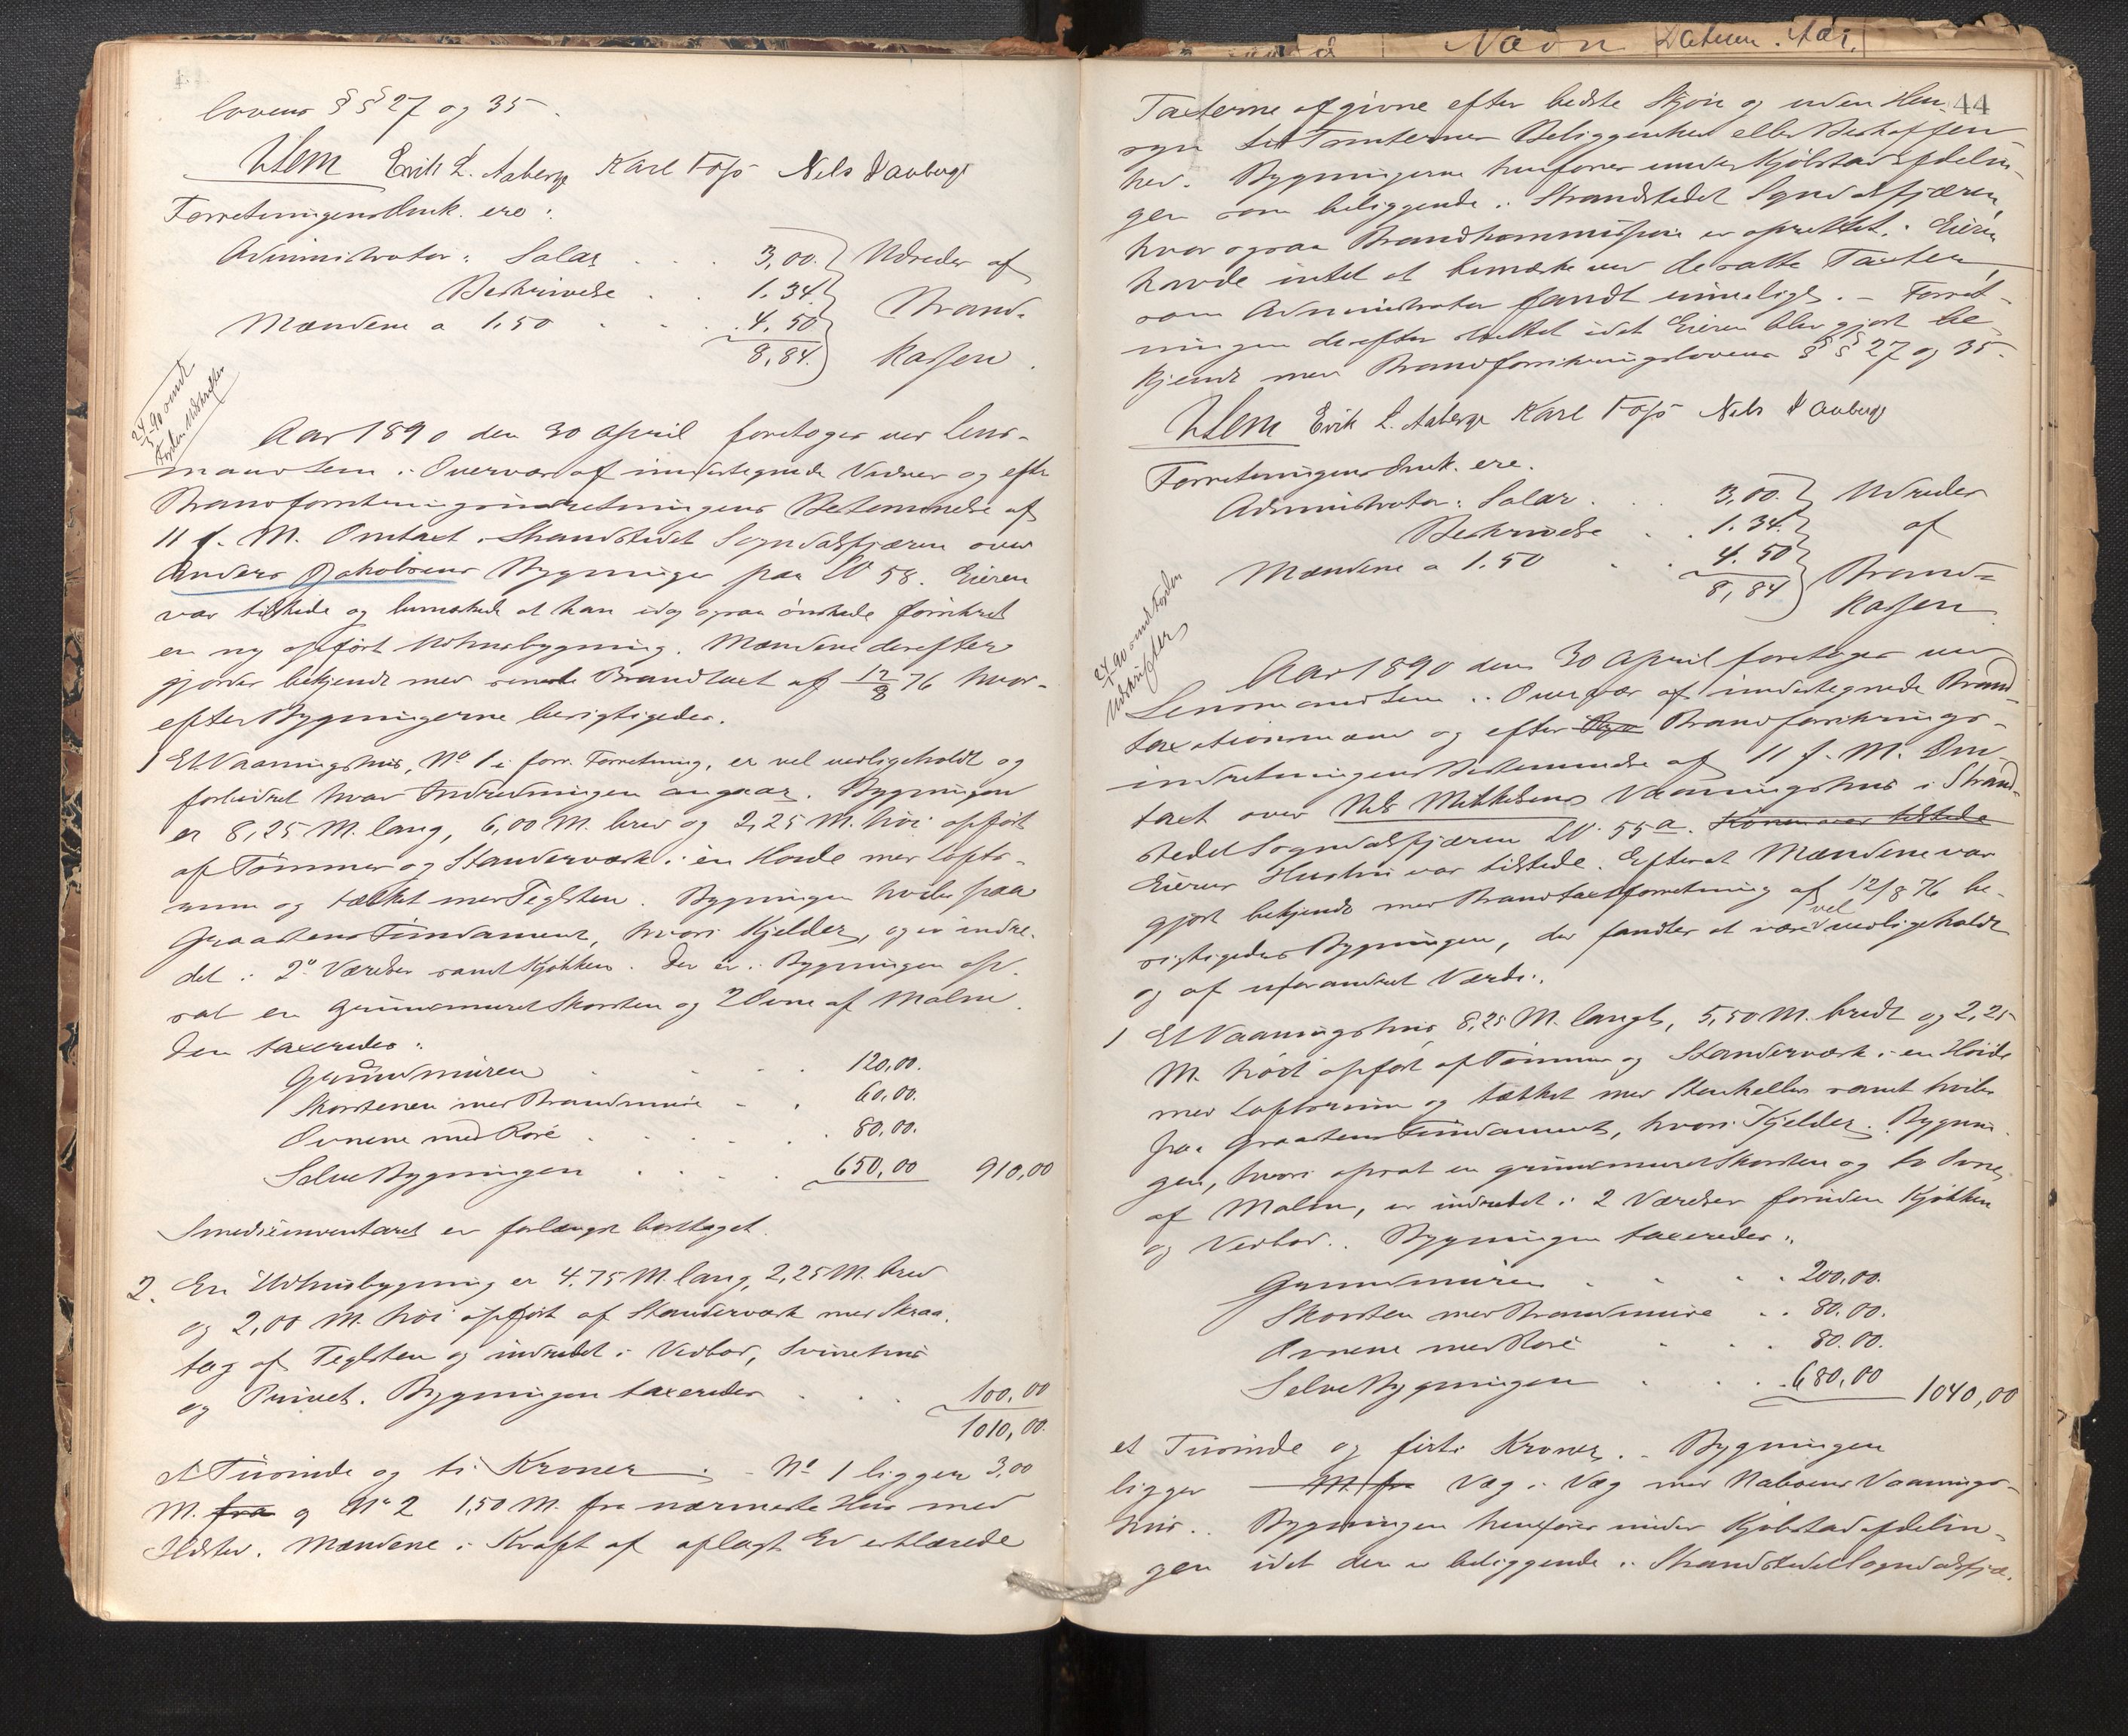 lovens §§ 27 og 35.
Ulem Erik L. Aaberge Karl Foss Nels Navberg
Forretningens Omk. ere:
Administrator: Salar . . . 3,00. Udredes af
Beskrivelse . . 1.34. Brand-
Mændene a 1,50 . . . 4,50 Kassen.
8,84.
Aar 1890 den 30 April foretoges ved Lens-
mand Lem i Overvær af undertegnede Vidner og efter
Brandforsikringsindretningens Bestemmelse af
11 f. M. Omtaxt i Strandstedet Sogndalsfjæren over
Anders Jakobsens Bygninger paa LN 58. Eieren
var tilstede og bemærkede at han idag ogsaa ønskede forsikret
en ny opført Udhusbygning. Mændene derefter
gjordes bekjendt med seneste Brandtaxt af 12/8 76 hvor-
efter Bygningerne besigtigedes.
1 Et Vaaningshus, No 1 i forr. Forretning, er vel vedligeholdt og
forbedret hvad Indredningen angaar. Bygningen
er 8,25 M. lang, 6,00 M. bred og 2,25 M. høi opført
af Tømmer og Standerværk i en Høide med Lofts-
rum og tækket med Teglsten. Bygningen hviler paa
Graastens Fundament, hvori Kjelder, og er indre-
det i 2de Værelser samt Kjøkken. Der er i Bygningen op-
sat en grundmuret Skorsten og 2 Ovne af Malm.
Den taxeredes:
Grundmuren . . . . 120,00.
Skorstenen med Brandmure . . 60,00.
Ovnene med Rør . . . . 80,00.
Selve Bygningen . . . . 650,00 910,00
Smedieinventaret er forlængst borttaget.
2. En Udhusbygning er 4.75 M. lang, 2,25 M. bred
og 2,00 M. høi opført af Standerværk med Skraa-
tag af Teglsten og indredet i Vedbod, Svinehus
og Privet. Bygningen taxeredes . . . 100,00
1010,00.
et Tusinde og ti Kroner. - No 1 ligger 3,00
M. fra og No 2 1,50 M. fra nærmeste Hus med
Ildsted. Mændene i Kraft af aflagt Ed erklærede
44
Taxterne afgivne efter bedste Skjøn og uden Hen-
syn til Tomternes Beliggenhed eller Beskaffen-
hed. Bygningerne henføres under Kjøbstadafdelin-
gen som beliggende i Strandstedet Sogndalsfjæren,
hvor ogsaa Brandkommission er oprettet. Eieren
havde intet at bemærke ved de satte Taxter,
som Administrator fandt rimeligt. - Forret-
ningen derefter sluttet idet Eieren blev gjort be-
kjendt med Brandforsikringslovens §§ 27 og 35.
Ulem Erik L. Aaberge Karl Foss Nels Navberg
Forretningens Omk. ere.
Administrator: Salar . . 3,00. Udredes
Beskrivelse . . 1.34. af
Mændene a 1.50 . . 4.50 Brand-
8,84 Kassen.
Aar 1890 den 30 April foretoges ved
Lensmand Lem i Overvær af undertegnede Brand-
taxationsmænd og efter Brandforsikrings-
indretningens Bestemmelse af 11 f. M. Om-
taxt over Nils Mikkelsens Vaaningshus i Strand-
stedet Sogndalsfjæren LN. 55a. Konen var tilstede
Eierens Hustru var tilstede. Efterat Mændene var
gjort bekjendt med Brandtaxtforretning af 12/8 76 be-
sigtigedes Bygningen, der fandtes at være vel vedligeholdt
og af uforandret Værdi:
1 Et Vaaningshus 8,25 M. langt, 5,50 M. bredt og 2,25
M. høit opført af Tømmer og Standerværk i en Høide
med Loftsrum og tækket med Stenheller samt hviler
paa Graastens Fundament, hvori Kjelder. Bygnin-
gen, hvori opsat en grundmuret Skorsten og to Ovne
af Malm, er indredet i 2 Værelser foruden Kjøkken
og Vedbod. Bygningen taxeredes:
Grundmuren . . . . 200,00.
Skorsten med Brandmure . . 80.00.
Ovnene med Rør . . . 80.00.
Selve Bygningen . . . 680,00 1040,00
et Tusinde og firti Kroner. - Bygningen
ligger M. fra Væg i Væg med Naboens Vaanings-
hus. Bygningen henføres under Kjøbstadafdelin-
gen idet den er beliggende i Strandstedet Sogndalsfjæ-